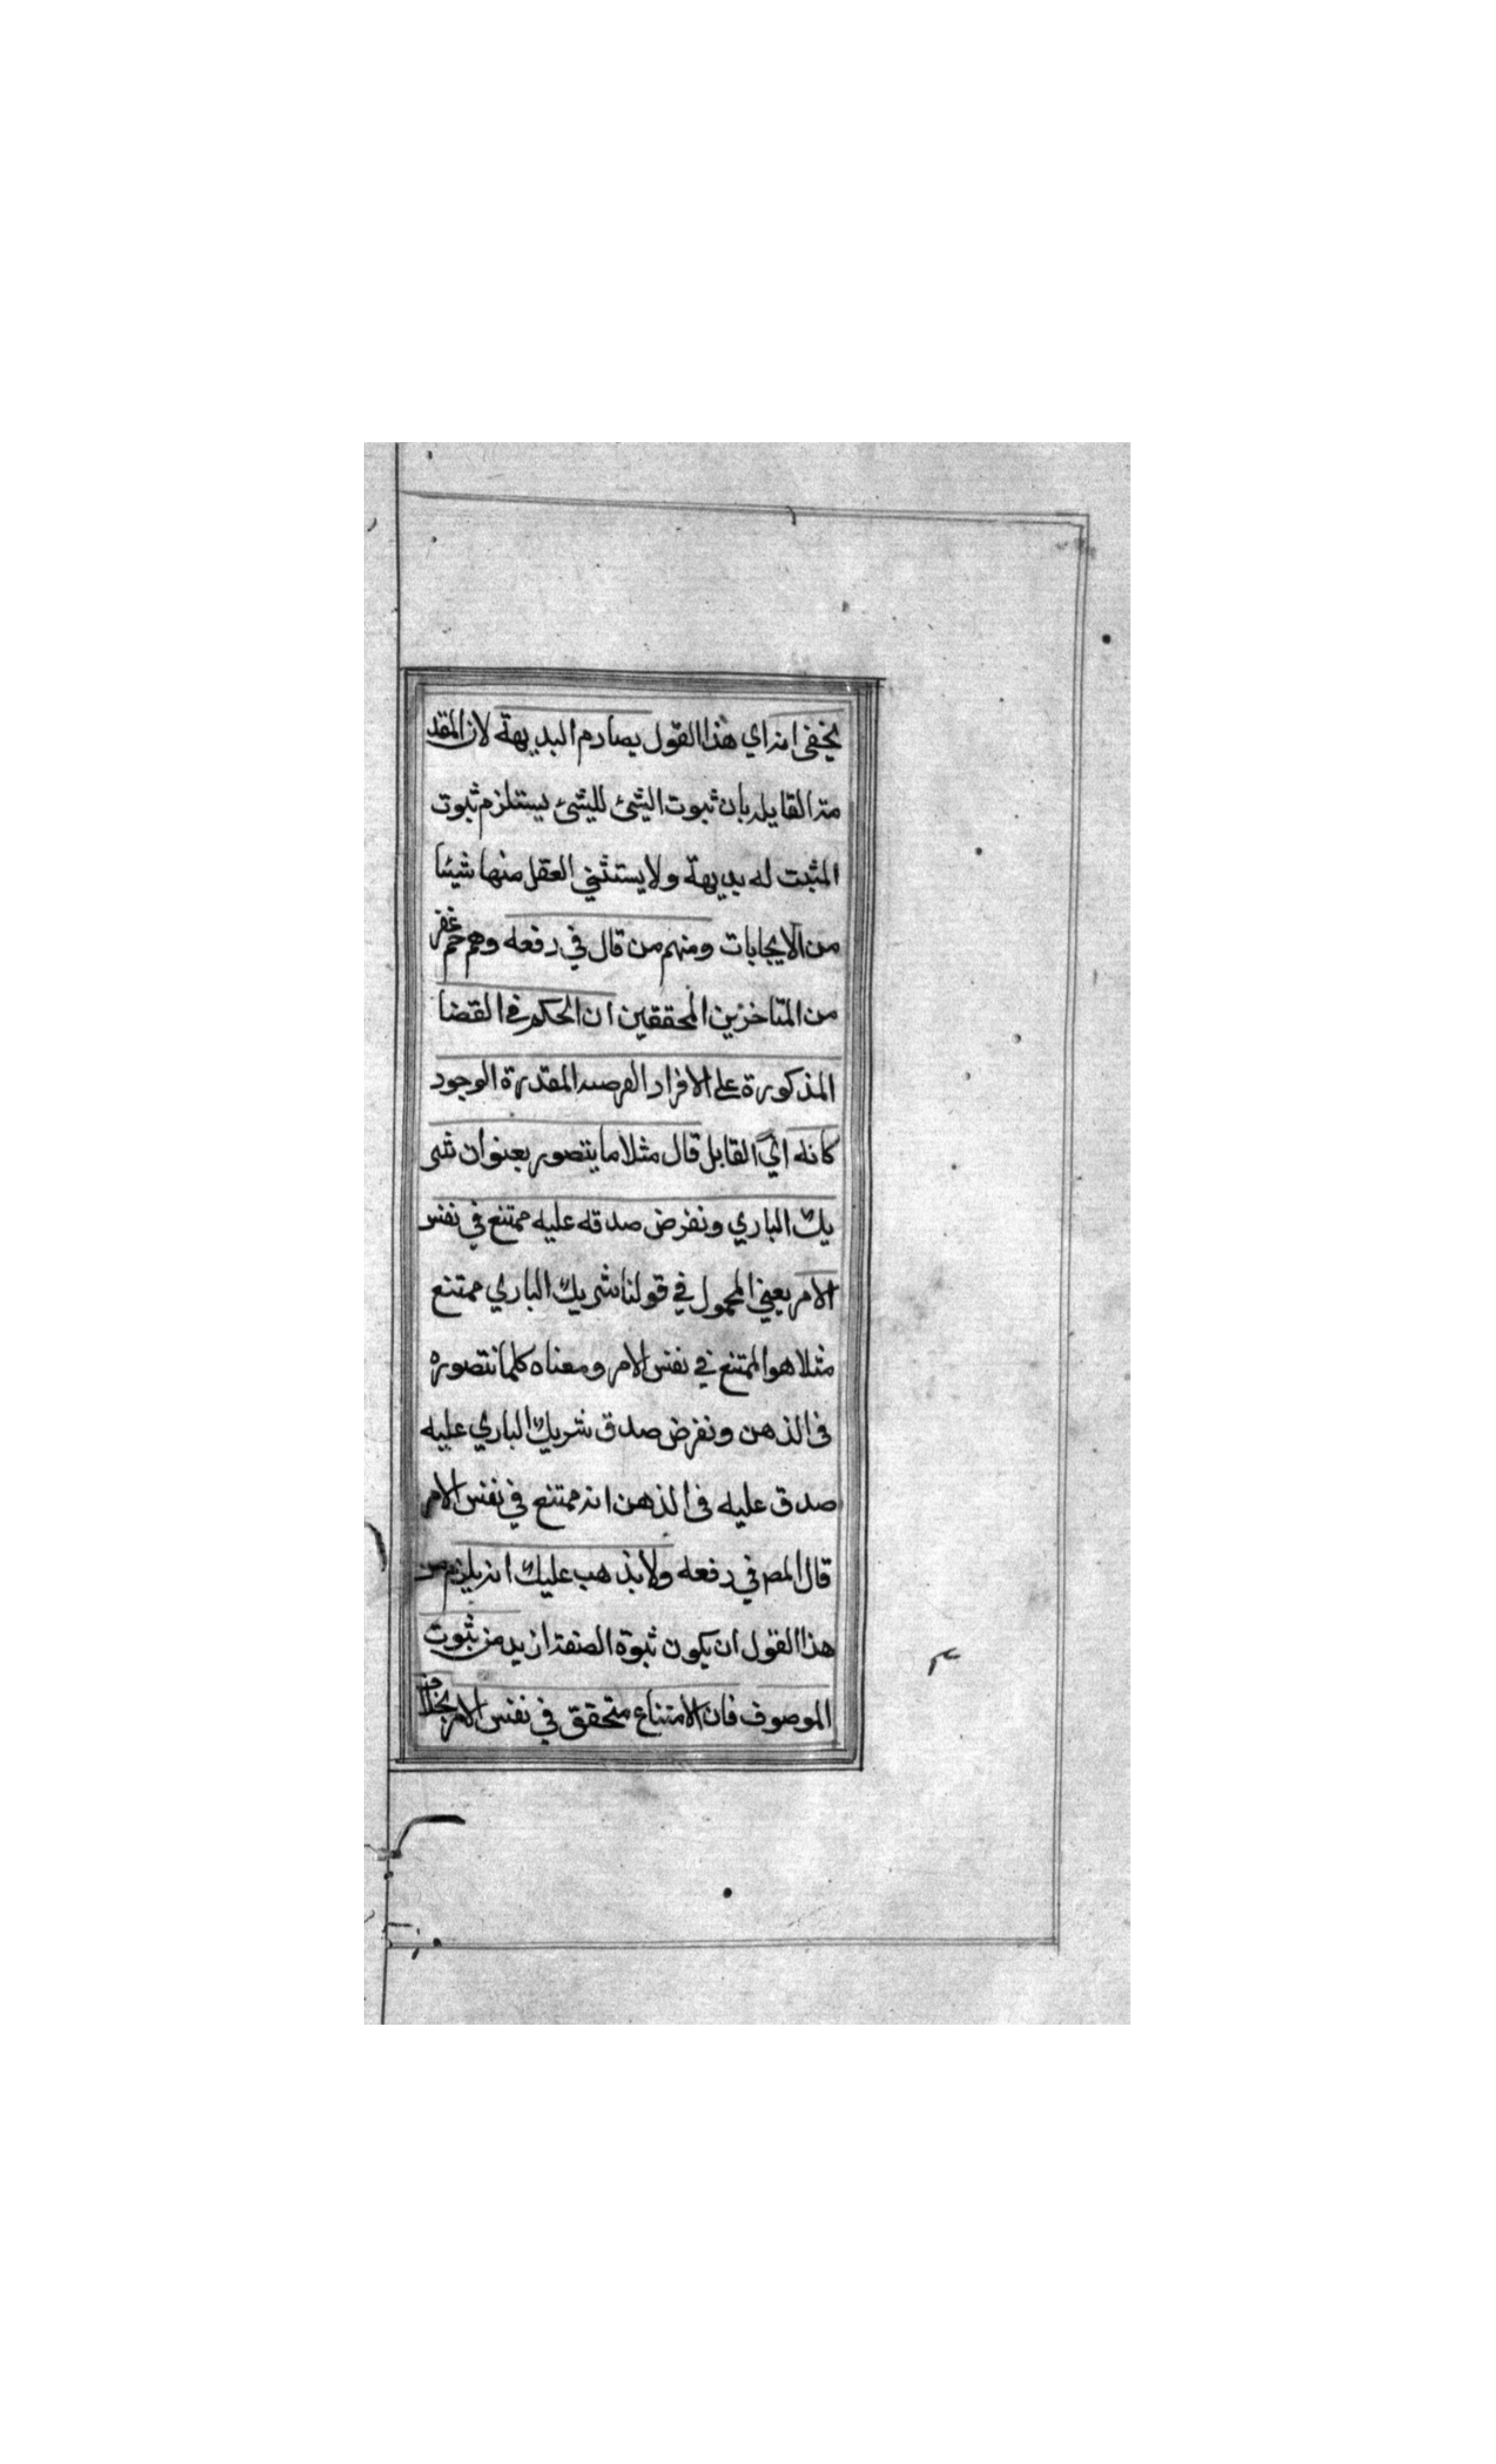 يخفى انه اي هذا القول يصادم البديهة لان المقد
مة القايله بان ثبوت الشئ للشئ يستلزم ثبوت
المثبت له بديهة ولا يستثني العقل منها شيئا
من الايجابات ومنهم من قال في دفعه وهم جم غفر
من المتاخرين المحققين ان الحكم في القضا
المذكورة على الافراد الفرصه المقدرة الوجود
كانه اي القايل قال مثلا ما يتصور بعنوان شر
يك الباري ونفرض صدقه عليه ممتنع في نفس
الامر يعني المحمول في قولنا شريك الباري ممتنع
مثلا هو الممتنع في نفس الامر ومعناه كلما نتصوره
في الذهن ونفرض صدق شريك الباري عليه
صدق عليه في الذهن انه ممتنع في نفس الامر
قال المص في دفعه ولا يذهب عليك انه يلزم من
هذا القول ان يكون ثبوة الصفة ازيد من ثبوت
الموصوف فان الامتناع متحقق في نفس الامر بخلاف